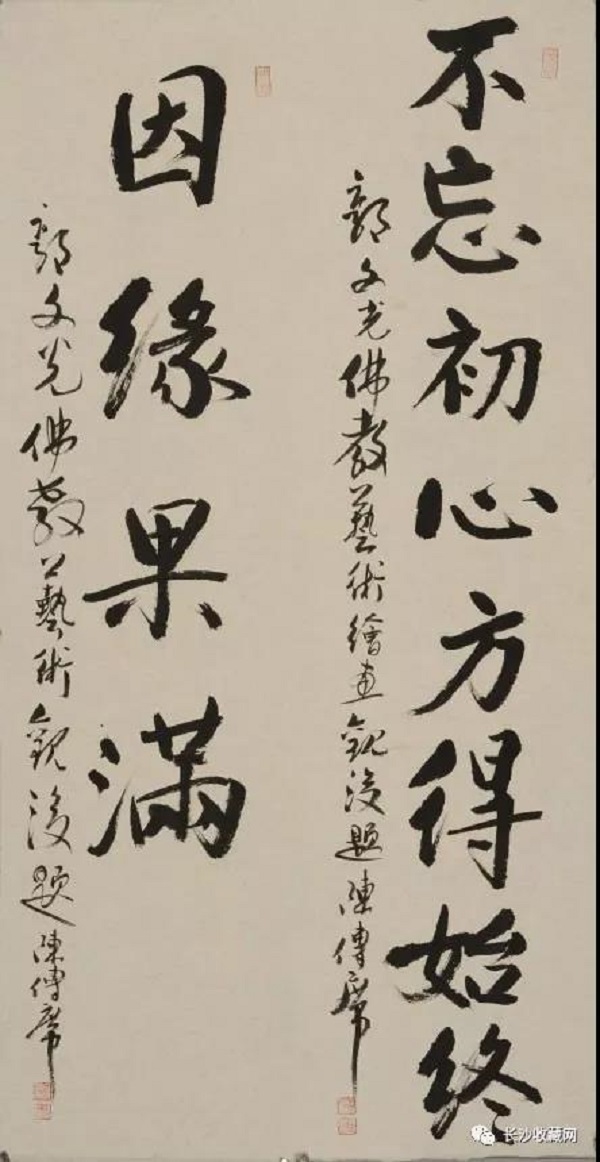 不忘初心方得始终
郭文光佛教藝術繪画觀後題 陳傳席
因缘果满
郭文光佛教藝術觀後題 陳傳席
长沙收藏网